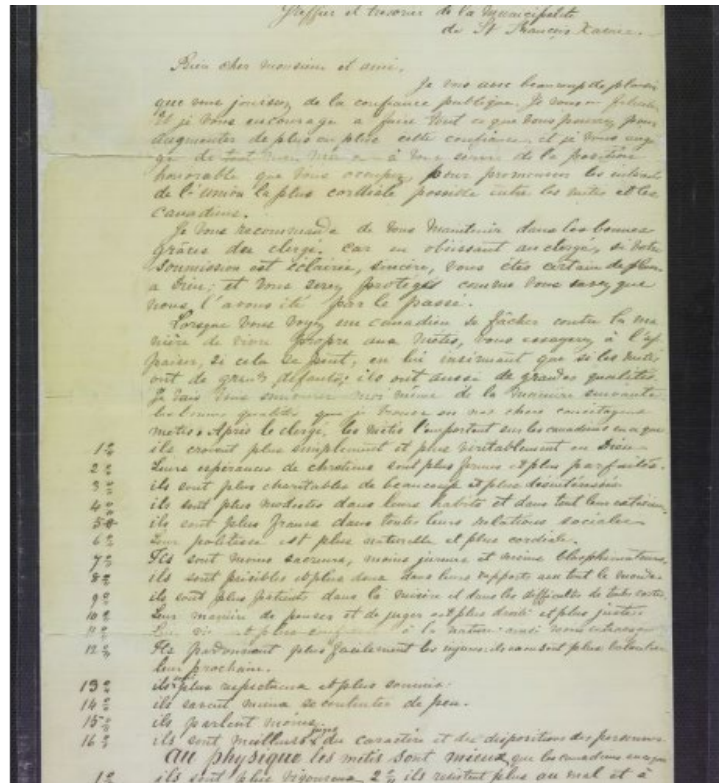 Greffier et tresorier de la Municipalité
de St François Xavier.
Bien cher monsieur et ami,
Je vois avec beaucoup de plaisir
que vous jouissez de la confiance publique. Je vous en félicite
et je vous encourage a faire tout ce que vous pouvez pour
augmenter de plus en plus cette confiance, et je vous enga
ge de tout à vous servir de la position
honorable que vous occupez, pour promouvoir les intérêts
de l'union la plus cordiale possible entre les metis et les
canadiens.
Je vous recommande de vous maintenir dans les bonnes
grâces du clergé. Car en obéissant au clergé, si votre
soumission est éclairée, sincère, vous êtes certain de plaire
a Dieu; et vous serez protégés comme vous savez que
nous l'avons été par le passé.
Lorsque vous voyez un canadien se fâcher contre la ma
nière de vivre propre aux Métis, vous essayerez à l'ap
paiser, si cela se peut, en lui insinuant que si les metis
ont de grands défauts; ils ont aussi de grandes qualités.
Je vais vous moi même de la manière suivante
les bonnes qualités que je trouve en nos chers concitoyens
metis. Après le clergé, les Métis l'emportent sur les canadiens en ce que
1º ils croient plus simplement et plus véritablement en Dieu
2º Leurs espérances de chrétiens sont plus fermes et plus parfaites.
3º ils sont plus charitables de beaucoup et plus désintéressés
4º ils sont plus modestes dans leurs habits et dans tout leur extérieur
5º ils sont plus francs dans toutes leurs relations sociales
6º Leur politesse est plus naturelle et plus cordiale.
7º Ils sont moins sacreurs, moins jureurs et moins blasphémateurs.
8º ils sont paisibles et plus doux dans leurs rapports avec tout le monde
9º ils sont plus patients dans la misère et dans les difficultés de toutes sortes
10º Leur manière de penser et de juger est plus droite et plus juste
11º Leur vie est plus conforme à la nature
12º Ils pardonnent plus facilement les injures: ils plus volontiers
leur prochain.
13º ils sont plus respectueux et plus soumis.
14º ils savent mieux se contenter de peu.
15º ils parlent moins.
16º ils sont meilleurs juges du caractère et des dispositions des personnes.
Au physique les métis sont mieux que les canadiens
1º ils sont plus vigoureux 2º ils résistent plus au mal et a